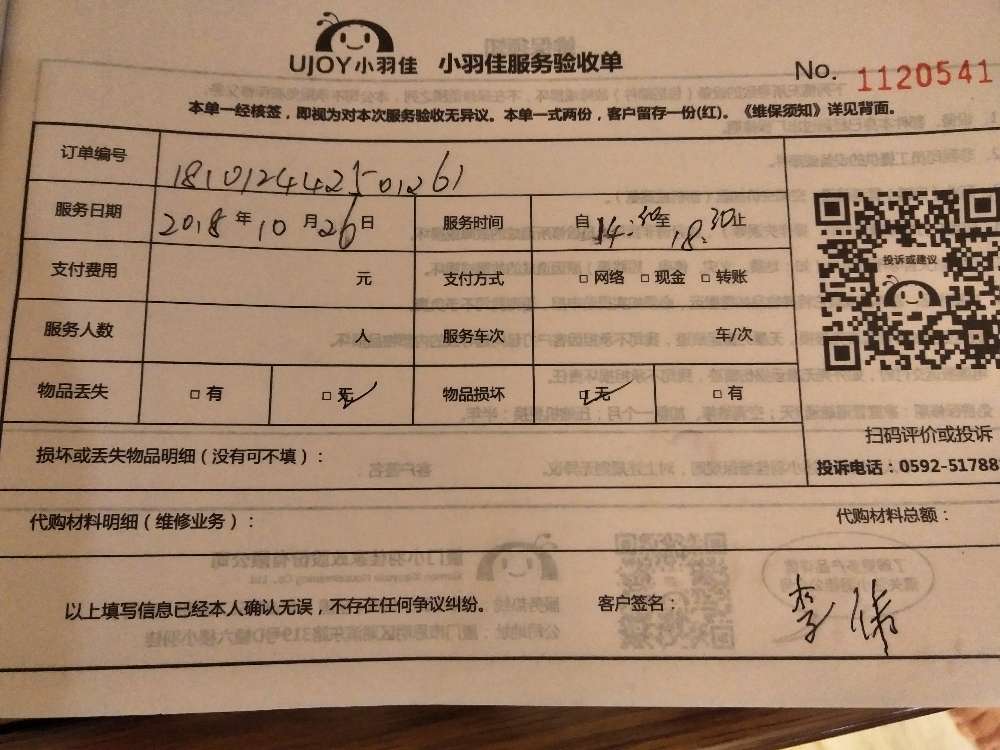 UJOY小羽佳 小羽佳服务验收单
No. 1120541
本单一经核签，即视为对本次服务验收无异议。本单一式两份，客户留存一份(红)。《维保须知》详见背面。
订单编号 181012442501261
服务日期 2018年10月26日 服务时间 自14:30至18:30止
支付费用 元 支付方式 □网络 □现金 □转账
服务人数 人 服务车次 车/次
物品丢失 □有 □无 物品损坏 □无 □有
投诉或建议
扫码评价或投诉
投诉电话：0592-51788
损坏或丢失物品明细（没有可不填）：
代购材料明细（维修业务）： 代购材料总额：
以上填写信息已经本人确认无误，不存在任何争议纠纷。 客户签名：李